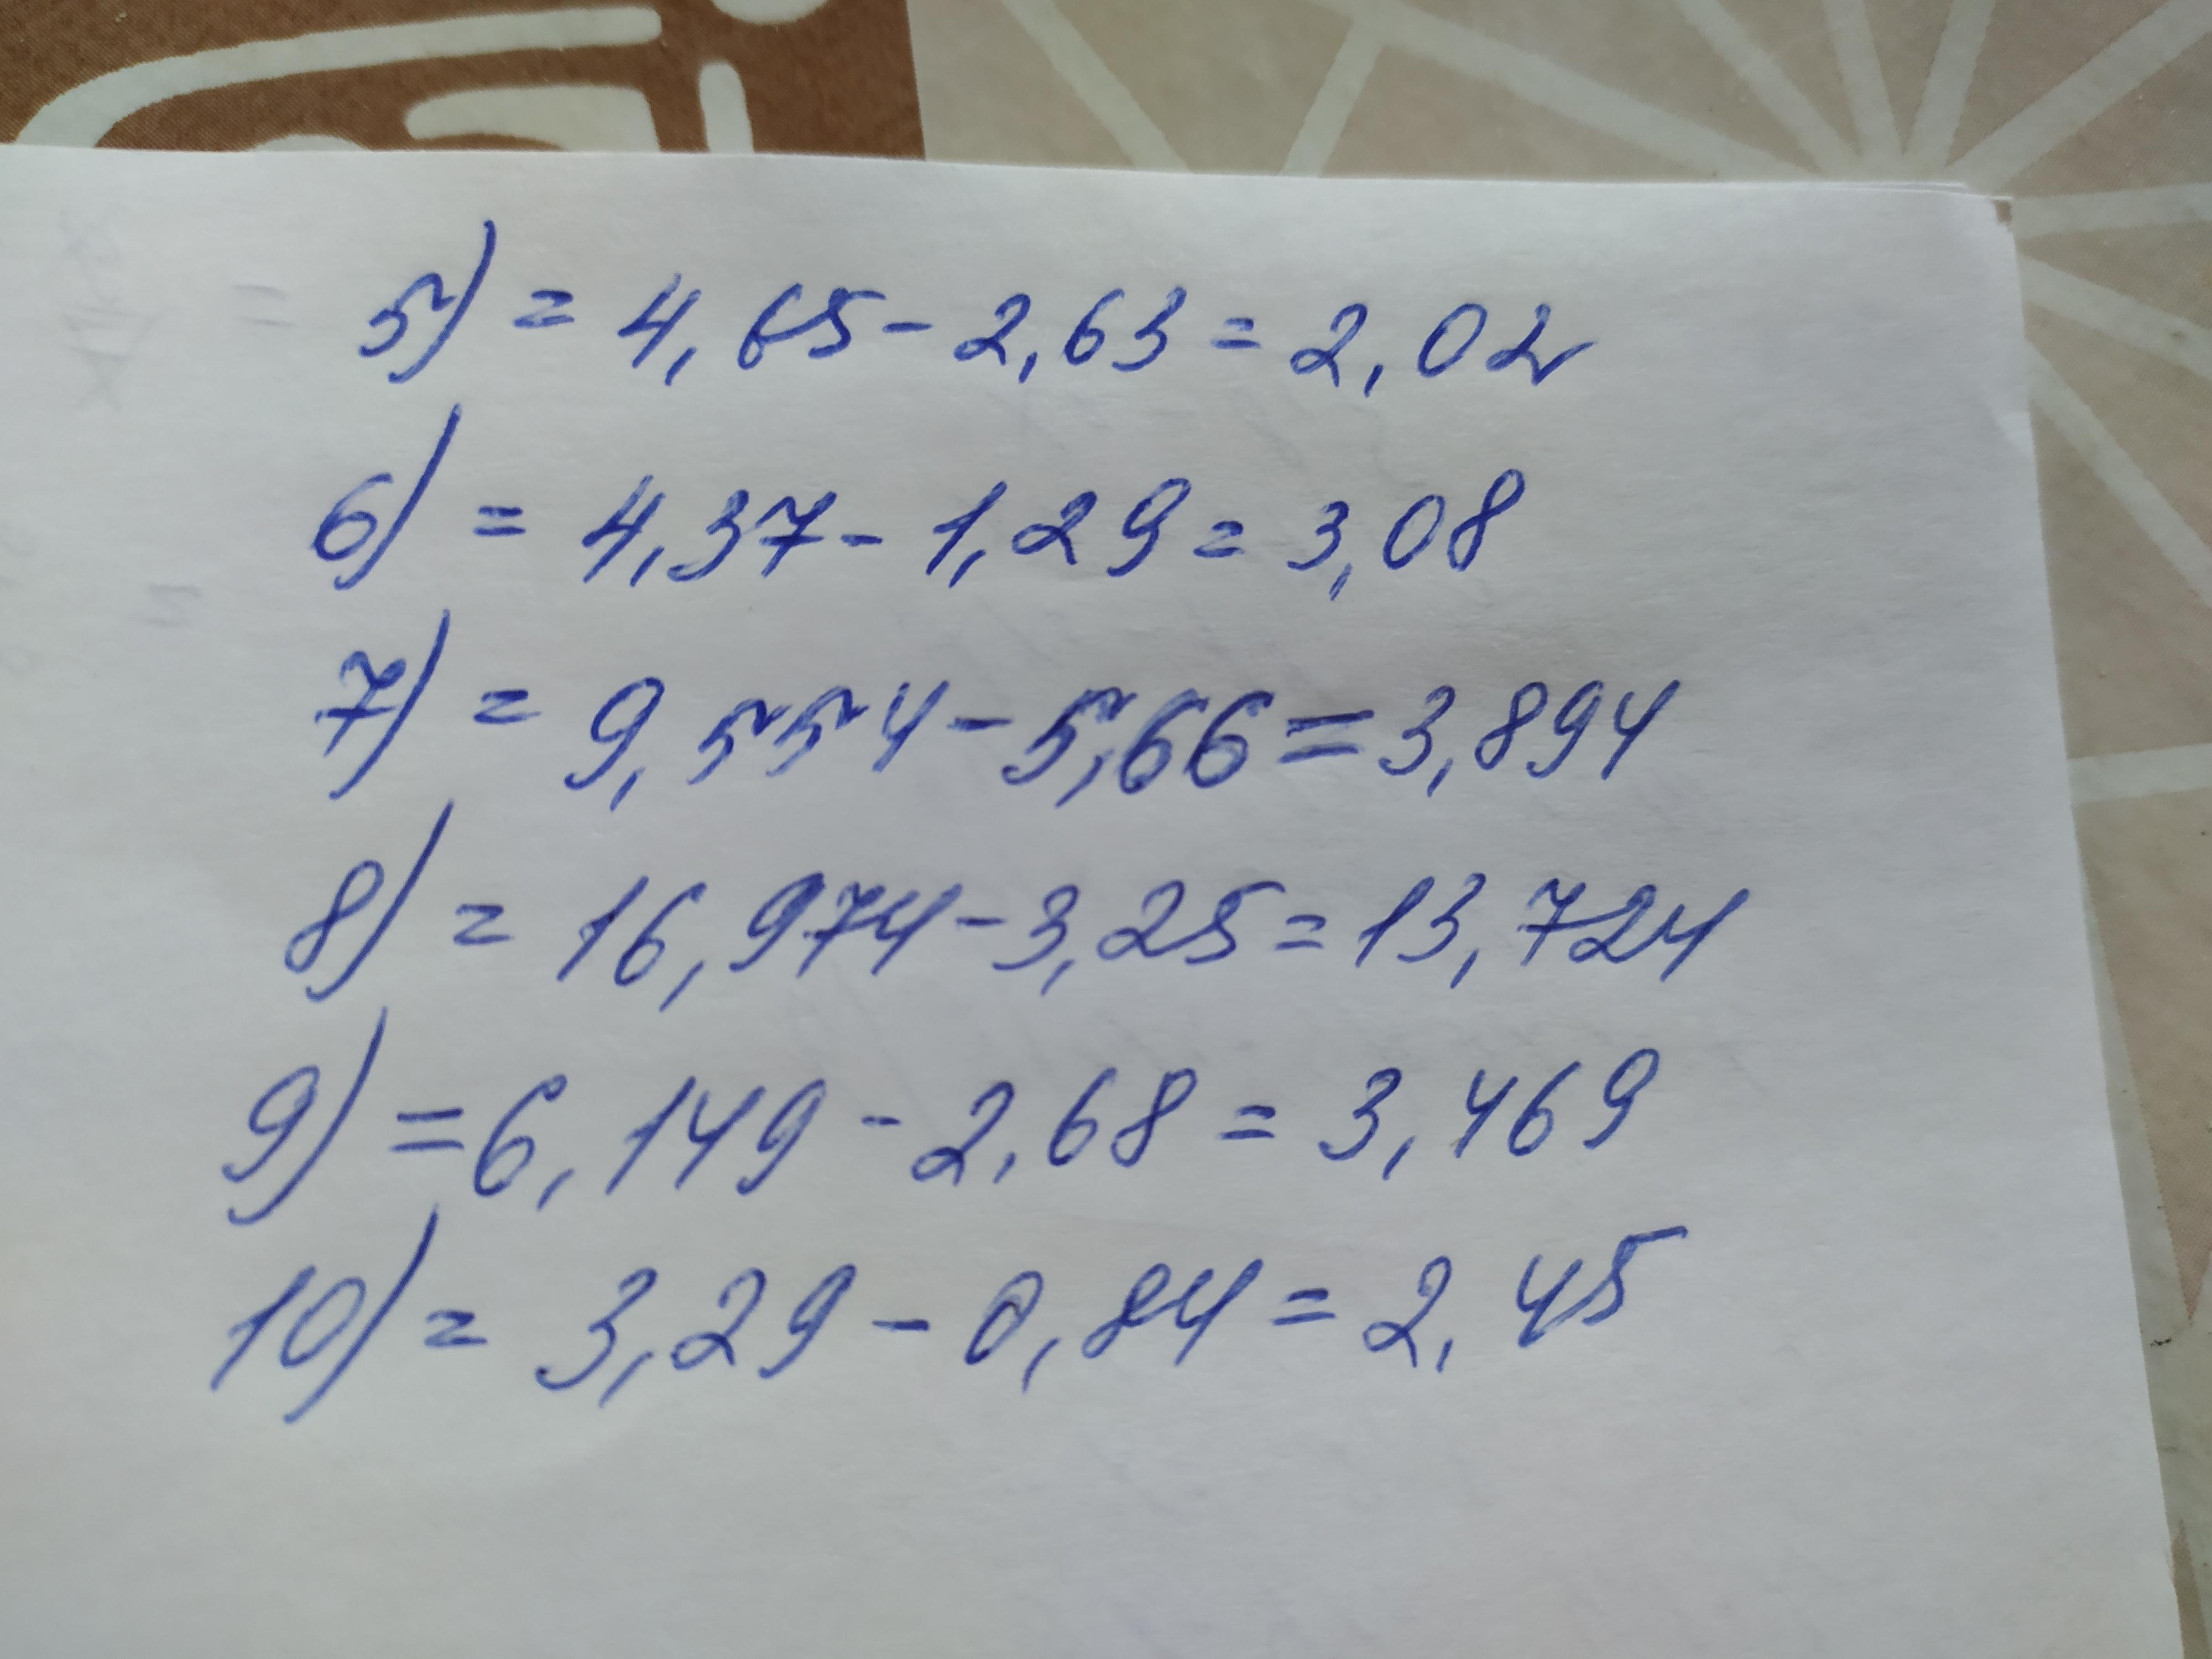 5) = 4,65 - 2,63 = 2,02
6) = 4,37 - 1,29 = 3,08
7) = 9,554 - 5,66 = 3,894
8) = 16,974 - 3,25 = 13,724
9) = 6,149 - 2,68 = 3,469
10) = 3,29 - 0,84 = 2,45